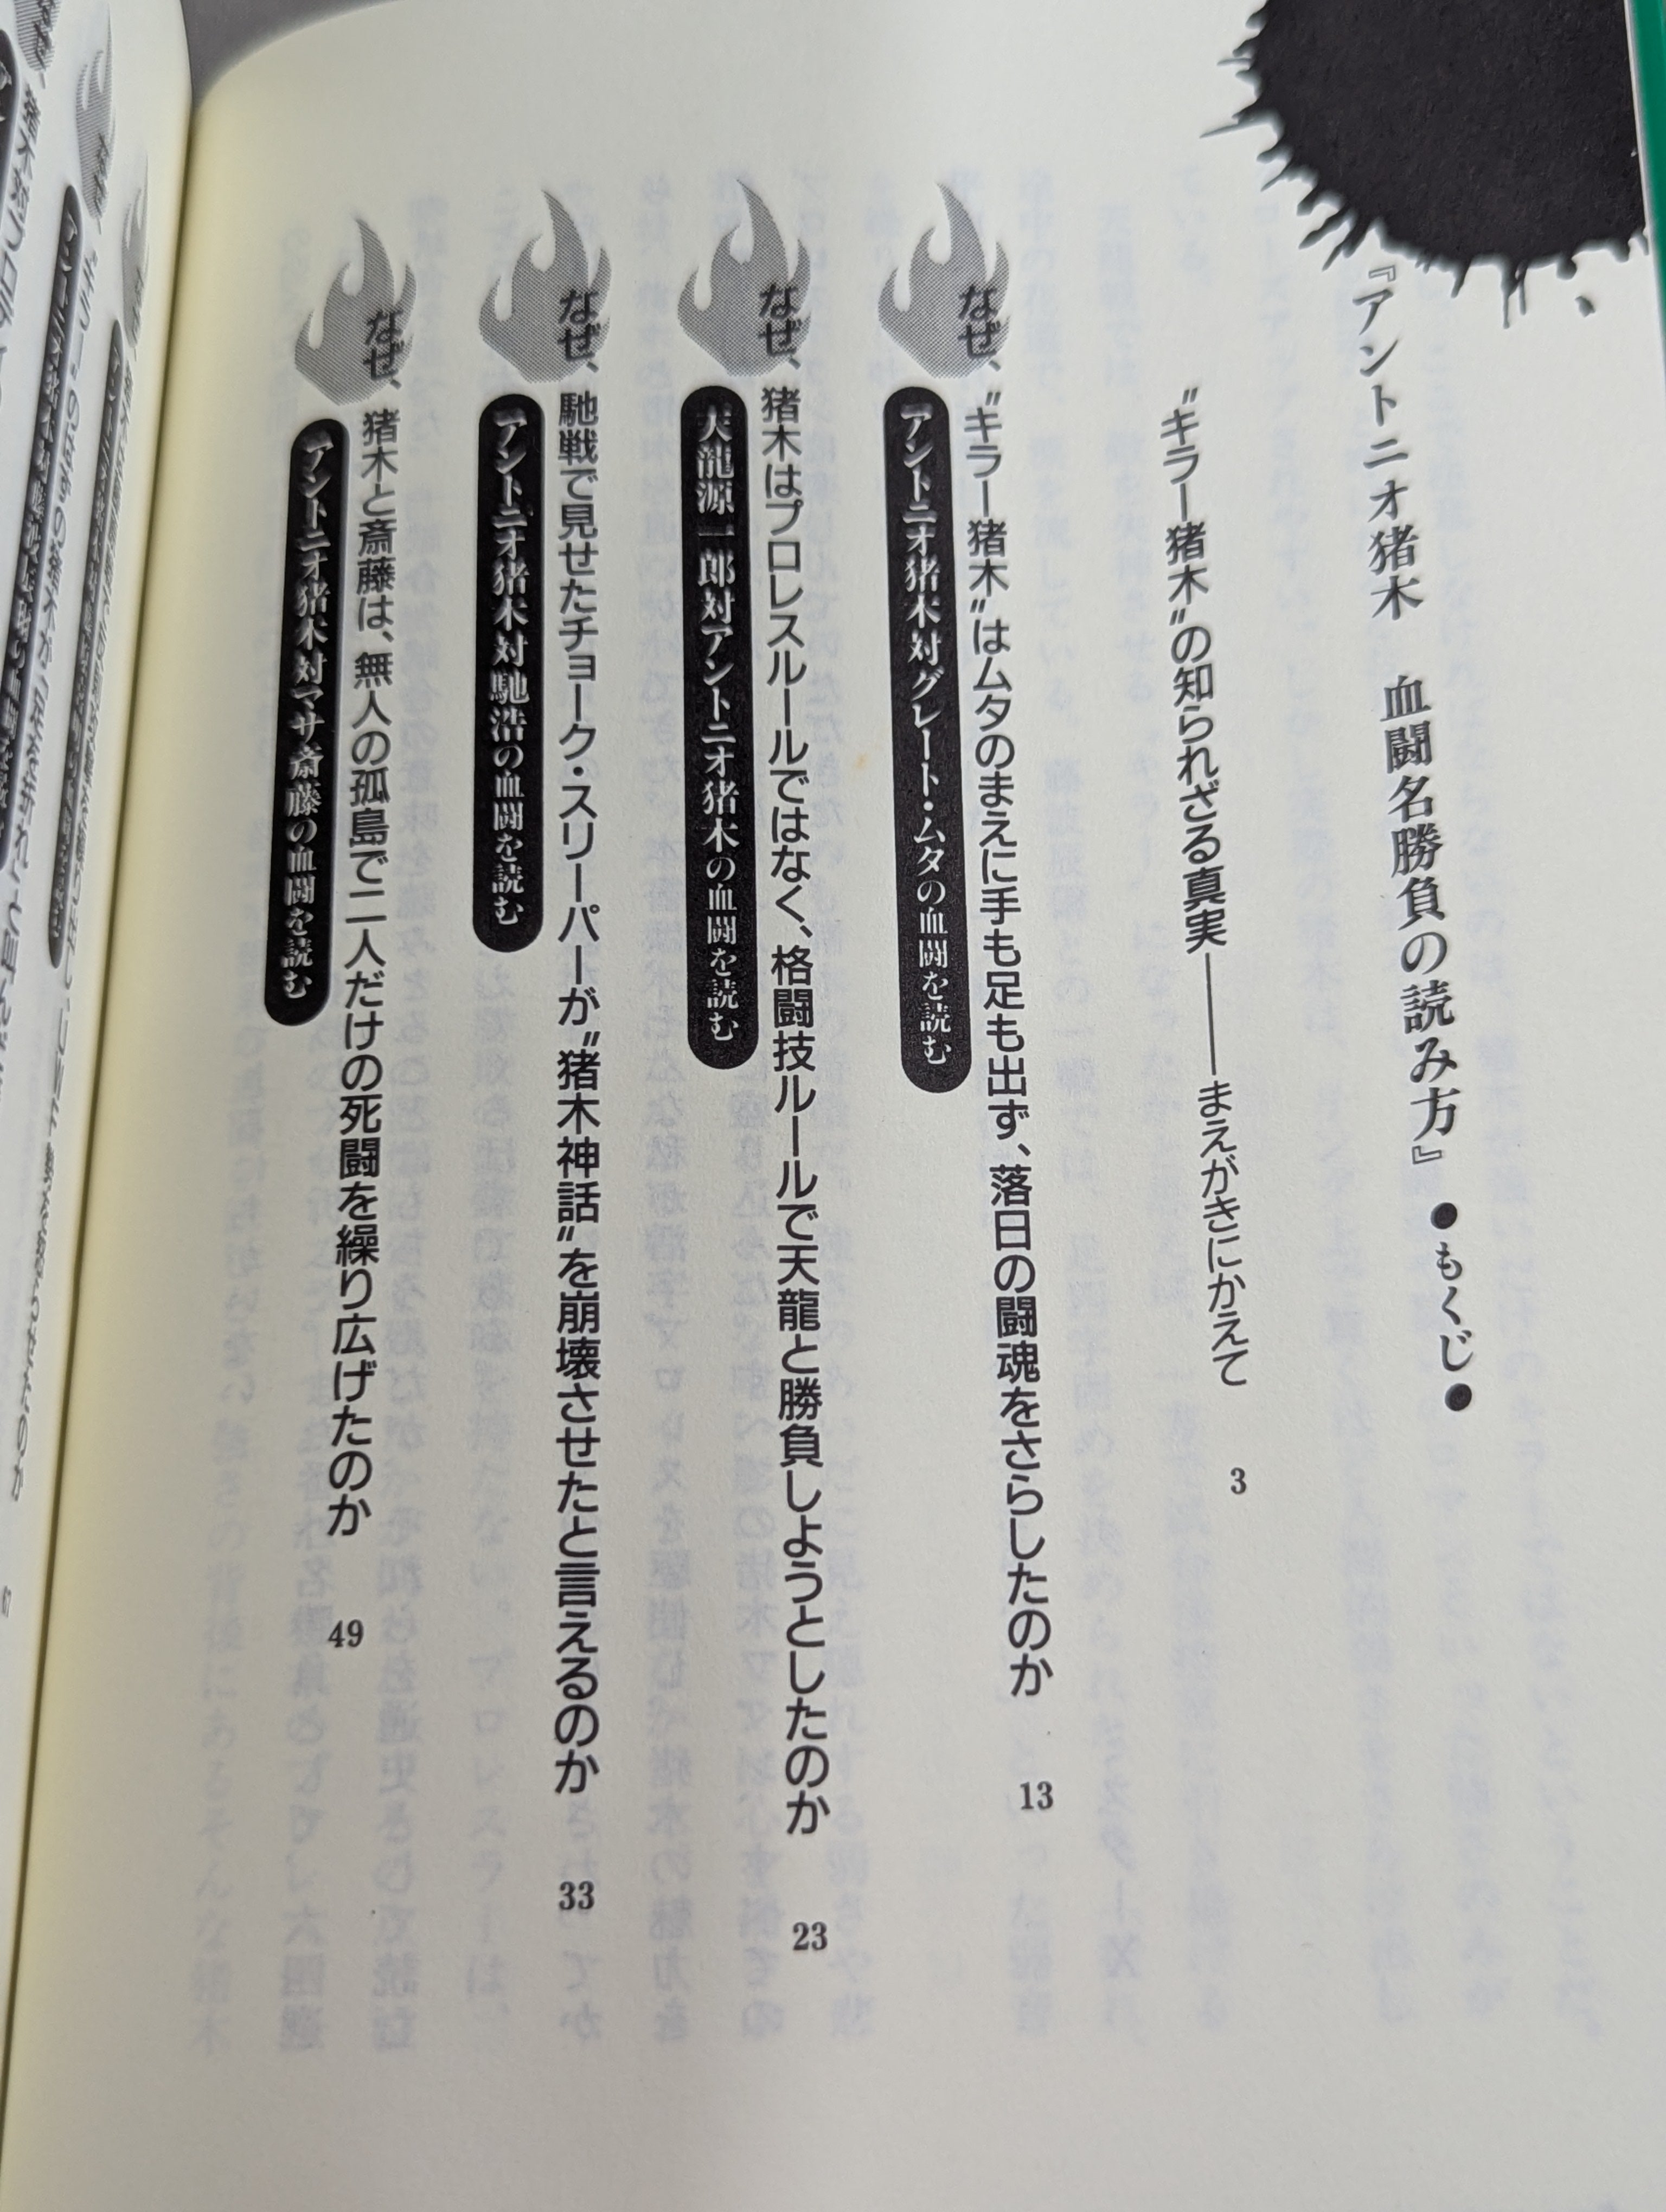 『アントニオ猪木　血闘名勝負の読み方』●もくじ●
〝キラー猪木〟の知られざる真実――まえがきにかえて　3
なぜ、〝キラー猪木〟はムタのまえに手も足も出ず、落日の闘魂をさらしたのか　13
アントニオ猪木対グレート・ムタの血闘を読む
なぜ、猪木はプロレスルールではなく、格闘技ルールで天龍と勝負しようとしたのか　23
天龍源一郎対アントニオ猪木の血闘を読む
なぜ、馳戦で見せたチョーク・スリーパーが〝猪木神話〟を崩壊させたと言えるのか　33
アントニオ猪木対馳浩の血闘を読む
なぜ、猪木と斎藤は、無人の孤島で二人だけの死闘を繰り広げたのか　49
アントニオ猪木対マサ斎藤の血闘を読む